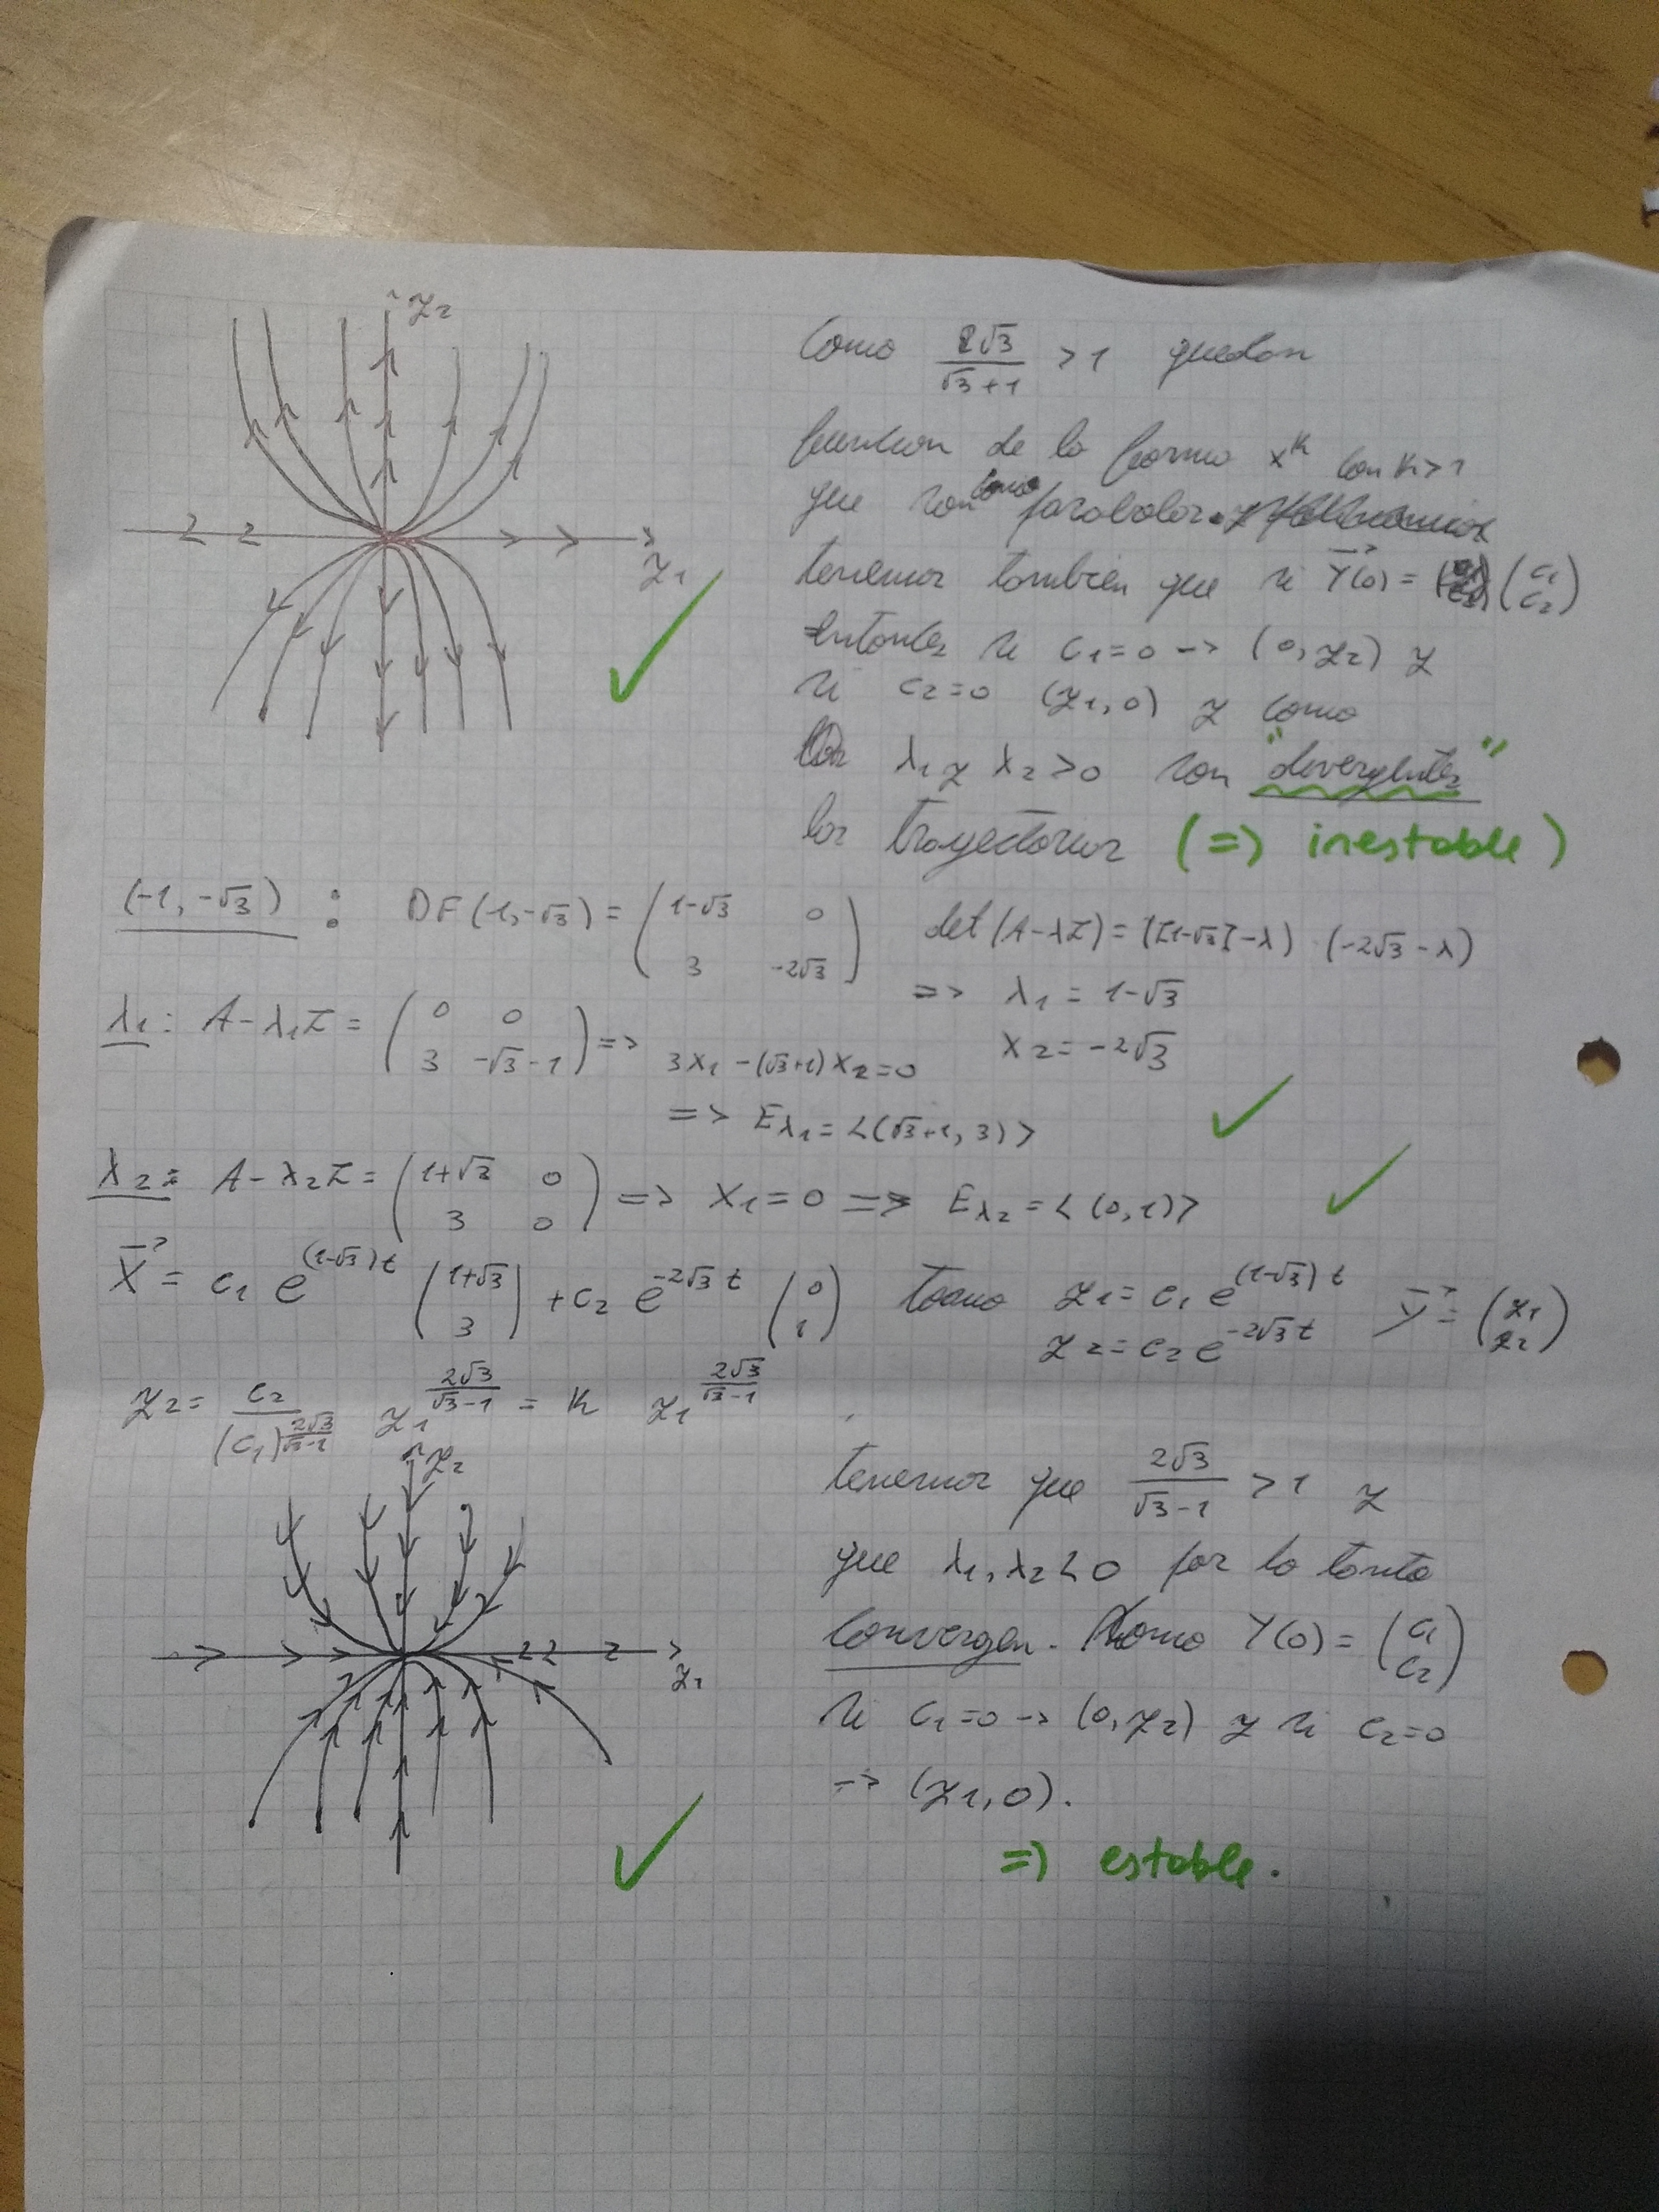 y₂
y₁
Como 2√3/(√3+1) > 1 quedan
funcion de la forma x^k con k>1
que son como parabolas.
tenemos tambien que si Y(0) = (c₁ c₂)
entonces si c₁=0 -> (0, y₂) y
si c₂=0 (y₁, 0) y como
λ₁ y λ₂ > 0 son "divergentes"
las trayectorias (=> inestable)
(-1, -√3) : DF(-1, -√3) = (1-√3 0 3 -2√3) det(A-λI) = ([1-√3]-λ) · (-2√3-λ)
=> λ₁ = 1-√3
λ₂ = -2√3
λ₁: A-λ₁I = (0 0 3 -√3-1) => 3x₁ - (√3+1)x₂ = 0
=> Eλ₁ = <(√3+1, 3)>
λ₂: A-λ₂I = (1+√3 0 3 0) => x₁ = 0 => Eλ₂ = <(0,1)>
X = c₁ e^((1-√3)t) (1+√3 3) + c₂ e^(-2√3 t) (0 1) Tomo y₁ = c₁ e^((1-√3)t) Y = (y₁ y₂)
y₂ = c₂ e^(-2√3 t)
y₂ = c₂/(c₁)^(2√3/(√3-1)) y₁^(2√3/(√3-1)) = k y₁^(2√3/(√3-1))
y₂
y₁
tenemos que 2√3/(√3-1) > 1 y
que λ₁, λ₂ < 0 por lo tanto
convergen. Como Y(0) = (c₁ c₂)
si c₁=0 -> (0, y₂) y si c₂=0
-> (y₁, 0).
=> estable.